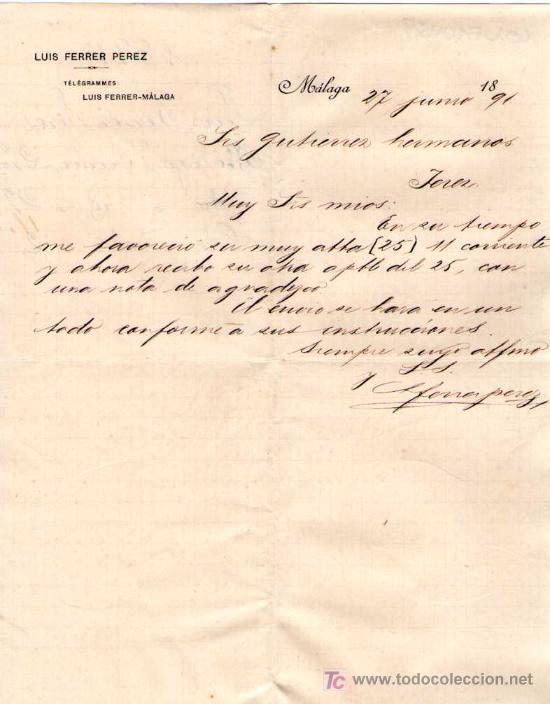 LUIS FERRER PEREZ
TÉLÉGRAMMES
LUIS FERRER-MÁLAGA
Málaga 27 junio 1891
Srs Gutierrez hermanos
Jerez
Muy Srs mios:
En su tiempo
me favoreció su muy atta (25) 11 corriente
y ahora recibo su otra a ptb del 25, con
una nota de agradezco
El envio se hará en un
todo conforme a sus instrucciones.
Siempre suyo affmo
S. S.
y
LFerrerperez
TC www.todocoleccion.net